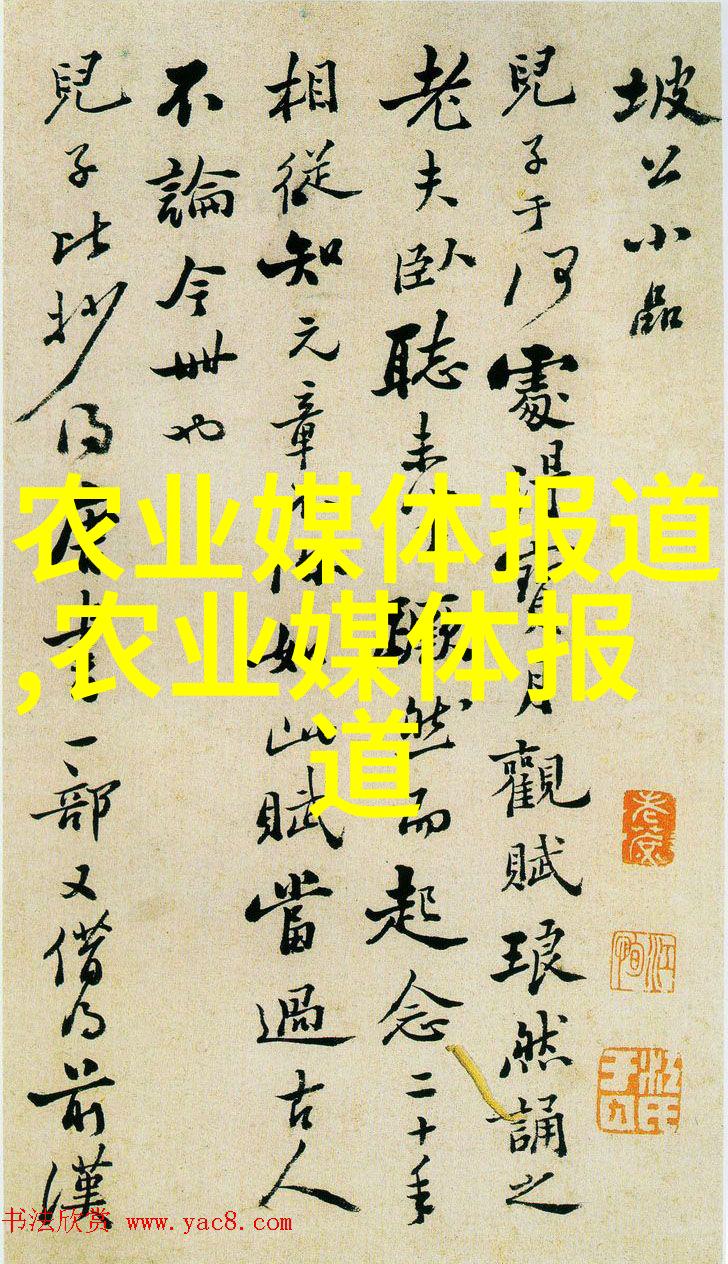 坡公小品
兒子于何處得寶月觀賦琅然誦之
老夫臥聽未然而起念二十年
相從知元章不如此賦當過古人
不論今世也
兒子比抄得唐書一部又借得前漢
农业媒体报道
,农业媒体报
道
书法欣赏 www.yac8.com